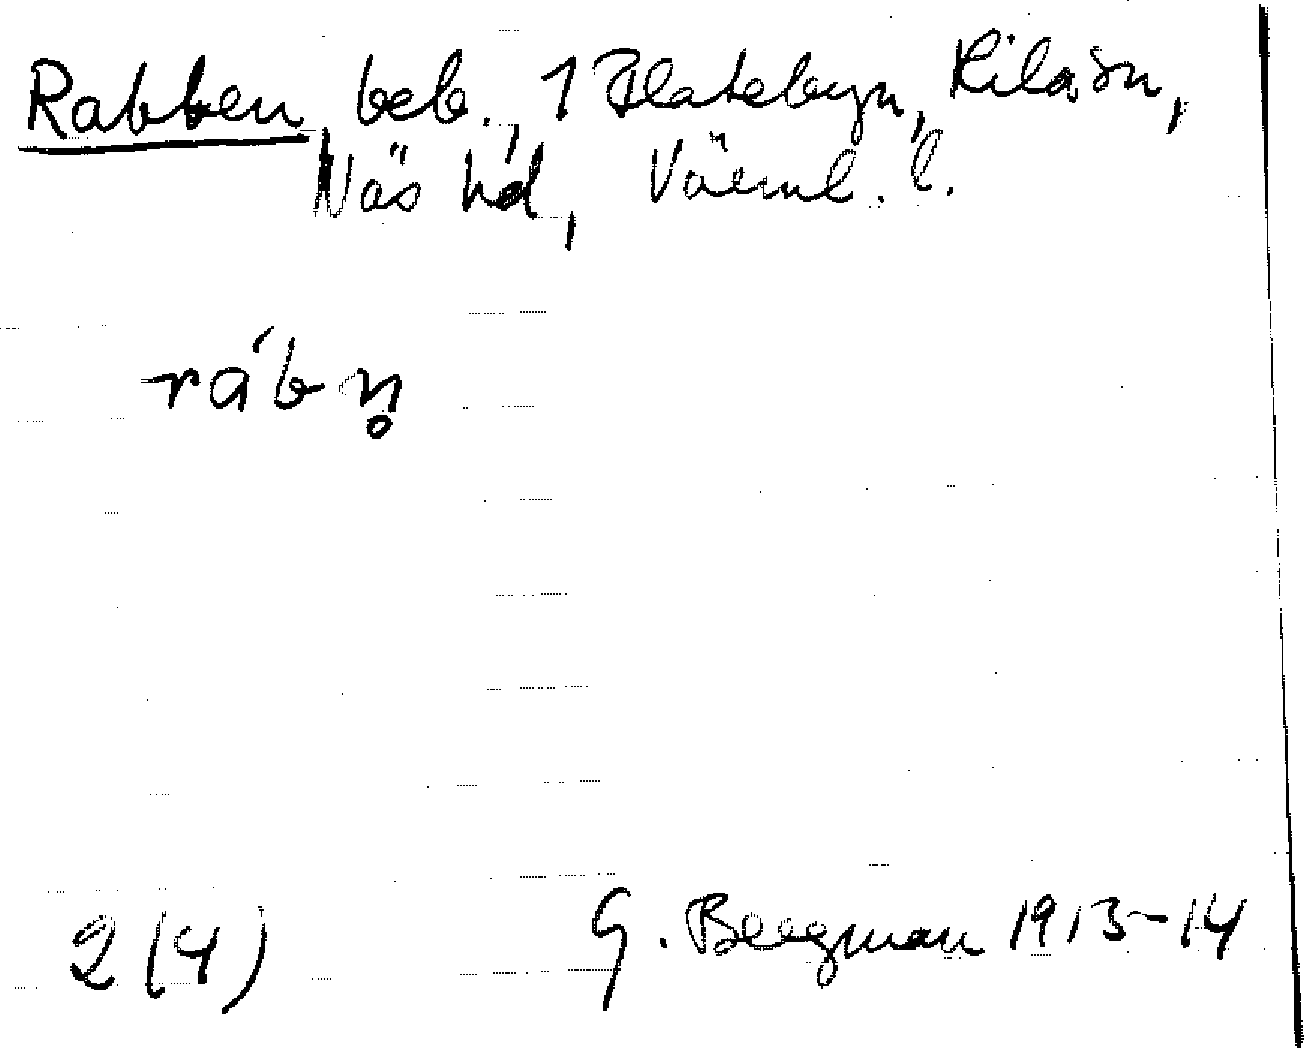 Rabben, beb., 1 Flatebyn, Kila sn,
Näs hd, Värml. l.
rábn̥
2(4)
G. Bergman 1913-14